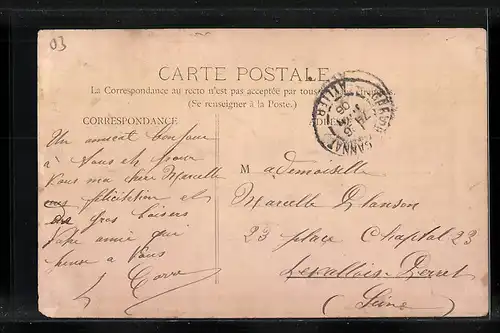 03
CARTE POSTALE
La Correspondance au recto n'est pas acceptée par tous
(Se renseigner à la Poste.)
CORRESPONDANCE
Un amical bonjour
à Vous et pour
Vous ma chère Marcelle
félicitation et
gros baisers
Votre amie qui
pense à Vous
GANNAT
ALLIER
Mademoiselle
Marcelle
23 place Chaptal 23
Levallois-Perret
(Seine)